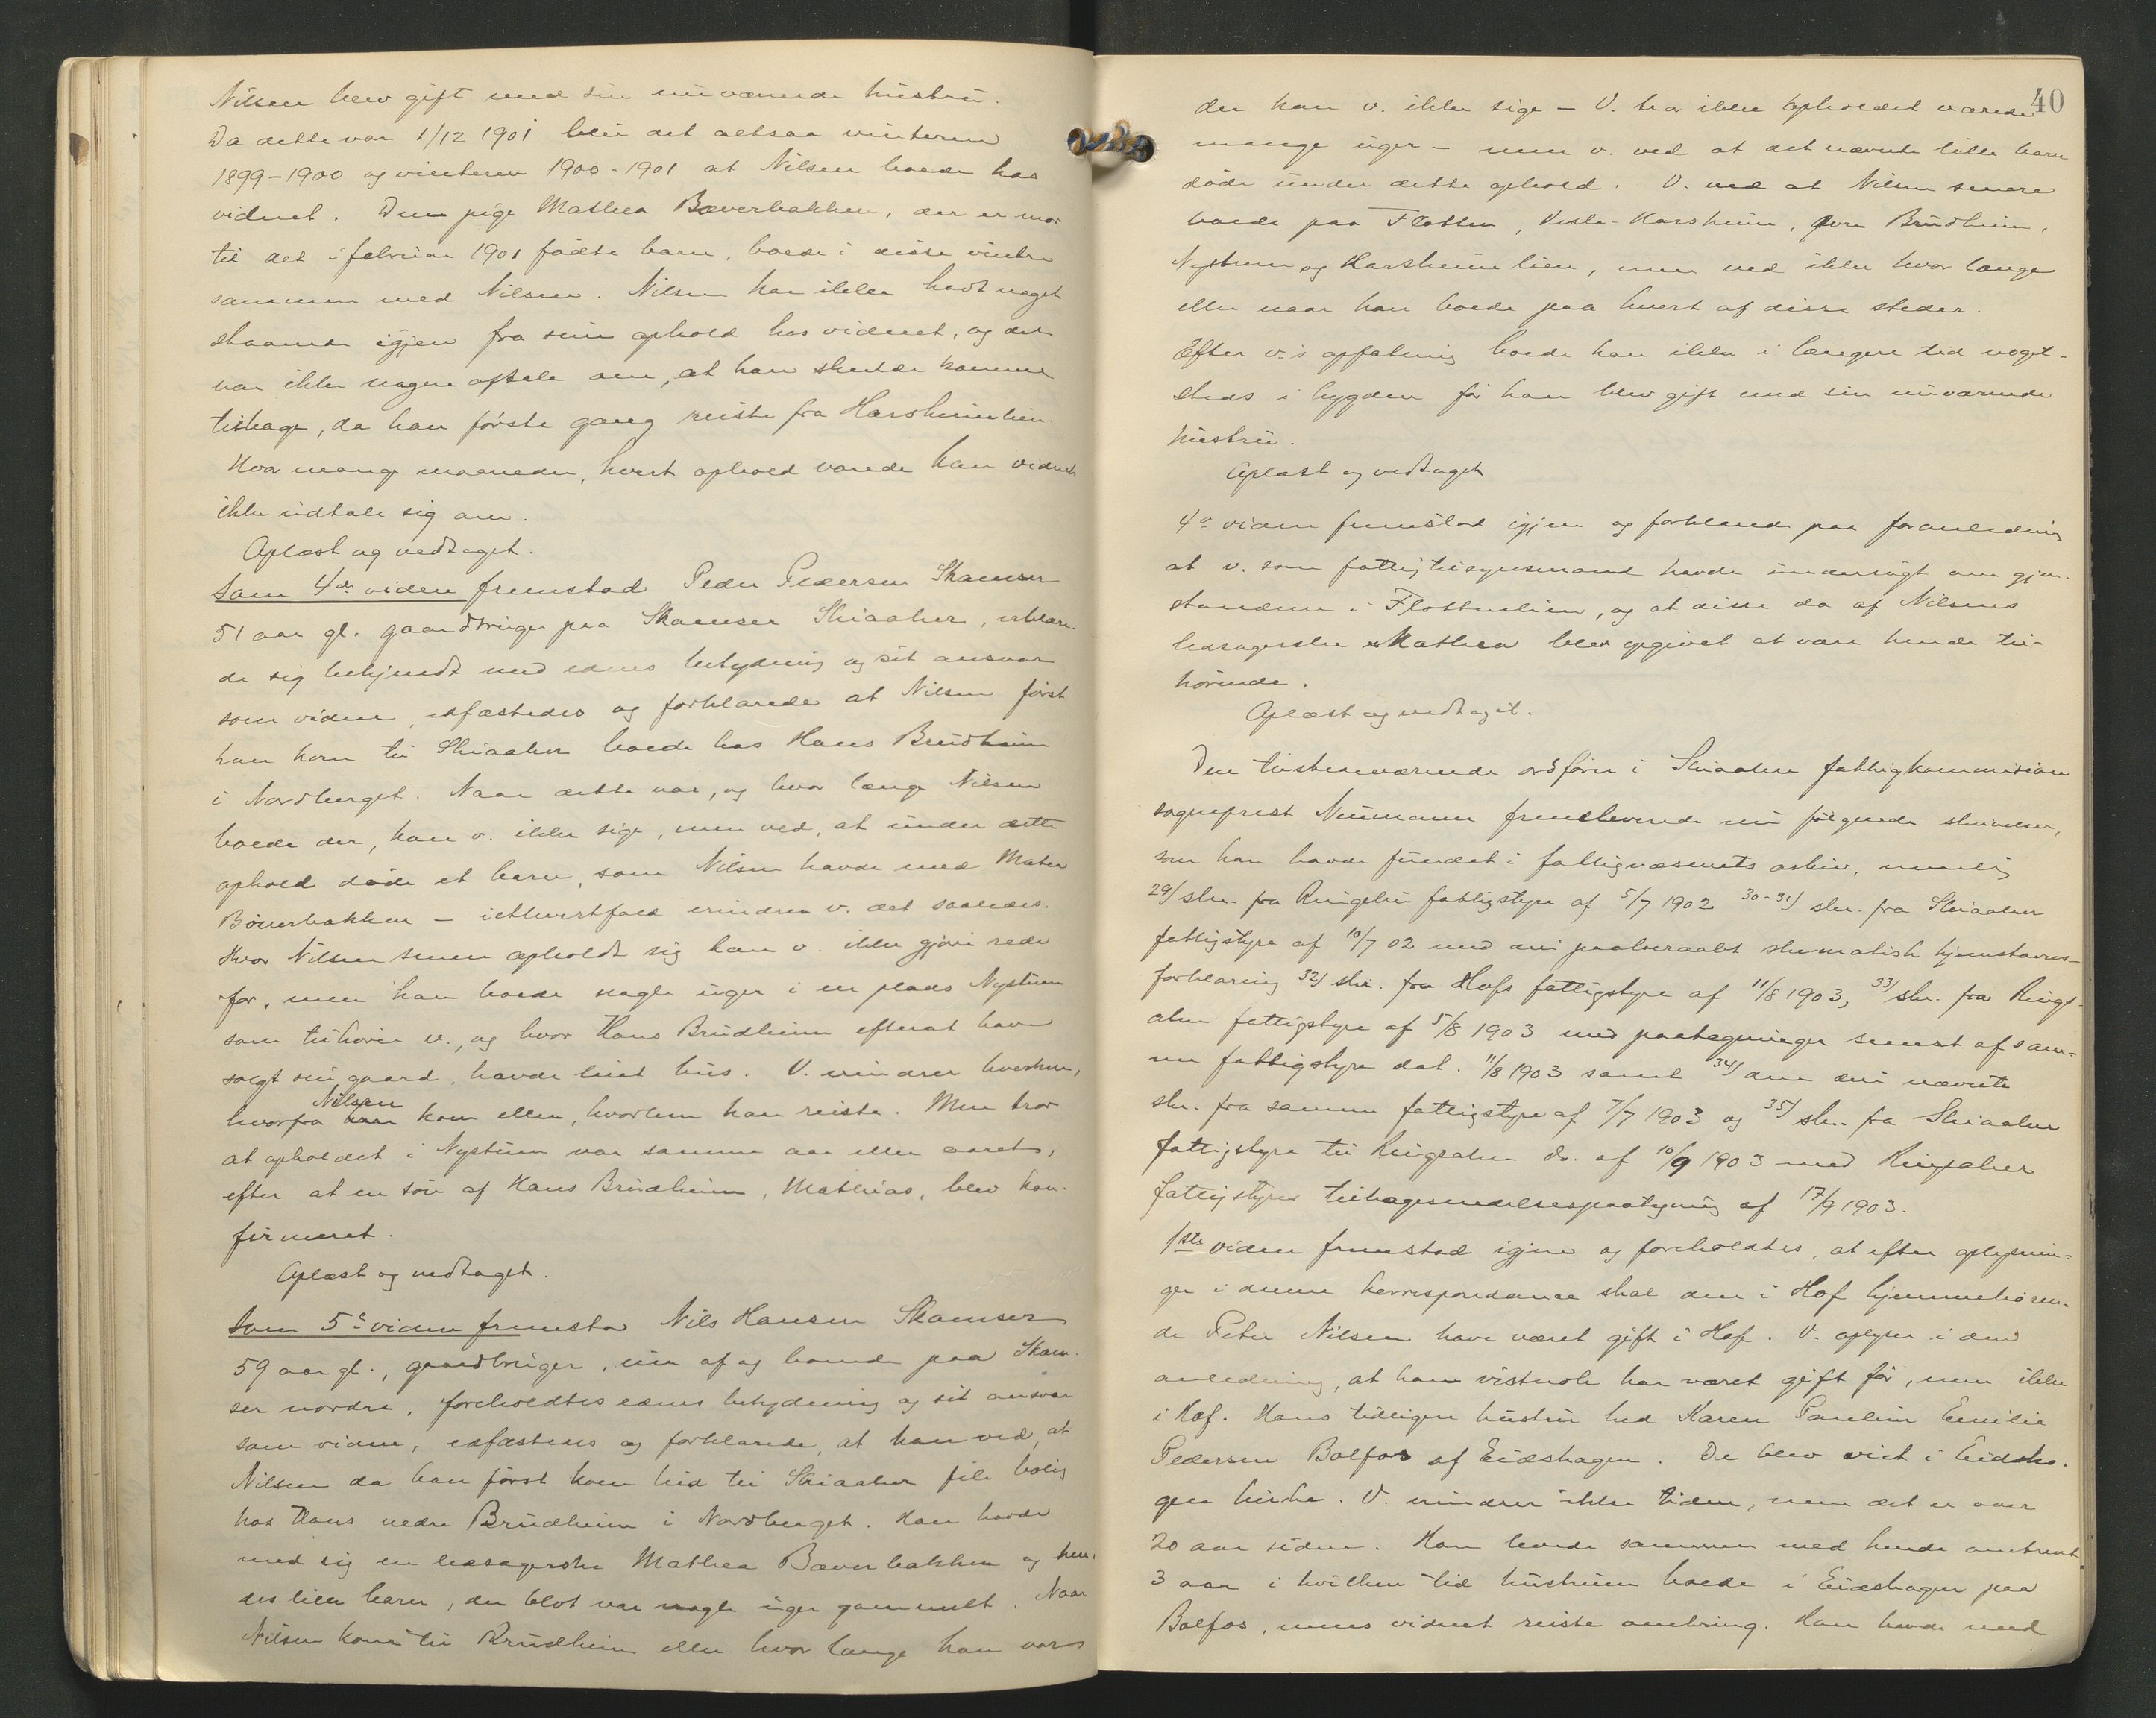 Nilsen blev gift med sin nuværende hustru.
Da dette var 1/12 1901 blir det altsaa vinteren
1899-1900 og vinteren 1900-1901 at Nilsen boede hos
vidnet. Den pige Mathea Bæverbakken, der er mor
til det i februar 1901 fødte barn, boede i disse vintre
sammen med Nilsen. Nilsen har ikke havt noget
staaende igjen fra sin ophold hos vidnet, og det
var ikke nogen aftale om, at han skulde komme
tilbage, da han første gang reiste fra Harsheimlien.
Hvor mange maaneder, hvert ophold varede kan vidnet
ikke udtale sig om.
Oplæst og vedtaget.
Som 4de vidne fremstod Peder Pedersen Skamser
51 aar gl. gaardbruger paa Skamser Skiaaker, erklære-
de sig bekjendt med edens betydning og sit ansvar
som vidne, edfæstedes og forklarede at Nilsen først
han kom til Skiaaker boede hos Hans Brudheim
i Nordberget. Naar dette var, og hvor længe Nilsen
boede der, kan v. ikke sige, men ved, at under dette
ophold døde et barn, som Nilsen havde med Mathea
Bæverbakken - ialtfald erindrer v. det saaledes.
Hvor Nilsen senere opholdt sig kan v. ikke gjøre rede
for, men han boede nogle uger i en plads Nystuen
som tilhører v., og hvor Hans Brudheim efterat have
solgt sin gaard, havde leiet hus. V. erindrer hverken,
hvorfra Nilsen kom eller, hvorhen han reiste. Men tror
at opholdet i Nystuen var samme aar eller aaret,
efter at en søn af Hans Brudheim, Mathias, blev kon-
firmeret.
Oplæst og vedtaget.
Som 5e vidne fremstod Nils Hansen Skamser
59 aar gl., gaardbruger, eier af og boende paa Skam-
ser nordre, foreholdtes edens betydning og sit ansvar
som vidne, edfæstedes og forklarede, at han ved, at
Nilsen da han først kom hid til Skiaaker fik bolig
hos Hans nedre Brudheim i Nordberget. Han havde
med sig en ledsagerske Mathea Bæverbakken og hen-
des lille barn, der blot var nogle uger gammelt. Naar
Nilsen kom til Brudheim eller hvor længe han var
40
der kan v. ikke sige - V. tror ikke opholdet varede
mange uger - men v. ved at det nævnte lille barn
døde under dette ophold. V. ved at Nilsen senere
boede paa Flotten, Vesle-Harsheim, øvre Brudheim,
Nystuen og Harsheimlien, men ved ikke hvor længe
eller naar han boede paa hvert af disse steder.
Efter v.'s opfatning boede han ikke i længere tid noget-
steds i bygden før han blev gift med sin nuværende
hustru.
Oplæst og vedtaget
4e vidne fremstod igjen og forklarede paa foranledning
at v. som fattigtilsynsmand havde undersøgt om gjen-
standene i Flottenlien, og at disse da af Nilsens
ledsagerske Mathea blev opgivet at være hende til-
hørende.
Oplæst og vedtaget.
Den tilstedeværende ordfører i Skiaaker fattigkommission
sogneprest Neumann fremleverede nu følgende skrivelser,
som han havde fundet i fattigvæsenets arkiv, nemlig
29/ skr. fra Ringebu fattigstyre af 5/7 1902 30-31/ skr. fra Skiaaker
fattigstyre af 10/7 02 med den paaberaabt skematisk hjemstavns-
forklaring 32/ skr. fra Hofs fattigstyre af 11/8 1903, 33/ skr. fra Rings-
aker fattigstyre af 5/8 1903 med paategninger senest af sam-
me fattigstyre dat. 11/8 1903 samt 34/ den deri nævnte
skr. fra samme fattigstyre af 7/7 1903 og 35/ skr. fra Skiaaker
fattigstyre til Ringsaker do. af 10/9 1903 med Ringsaker
fattigstyres tilbagesendelsespaategning af 17/9 1903.
1ste vidne fremstod igjen og foreholdtes, at efter oplysnin-
ger i denne korrespondance skal den i Hof hjemmehøren-
de Peter Nilsen have været gift i Hof. V. oplyser i den
anledning, at han vistnok har været gift før, men ikke
i Hof. Hans tidligere hustru hed Karen Pauline Emilie
Pedersen Bolfos af Eidskogen. De blev viet i Eidsko-
gen kirke. V. erindrer ikke tiden, men det er over
20 aar siden. Han levede sammen med hende omtrent
3 aar i hvilken tid hustruen boede i Eidskogen paa
Bolfos, mens vidnet reiste omkring. Han havde med